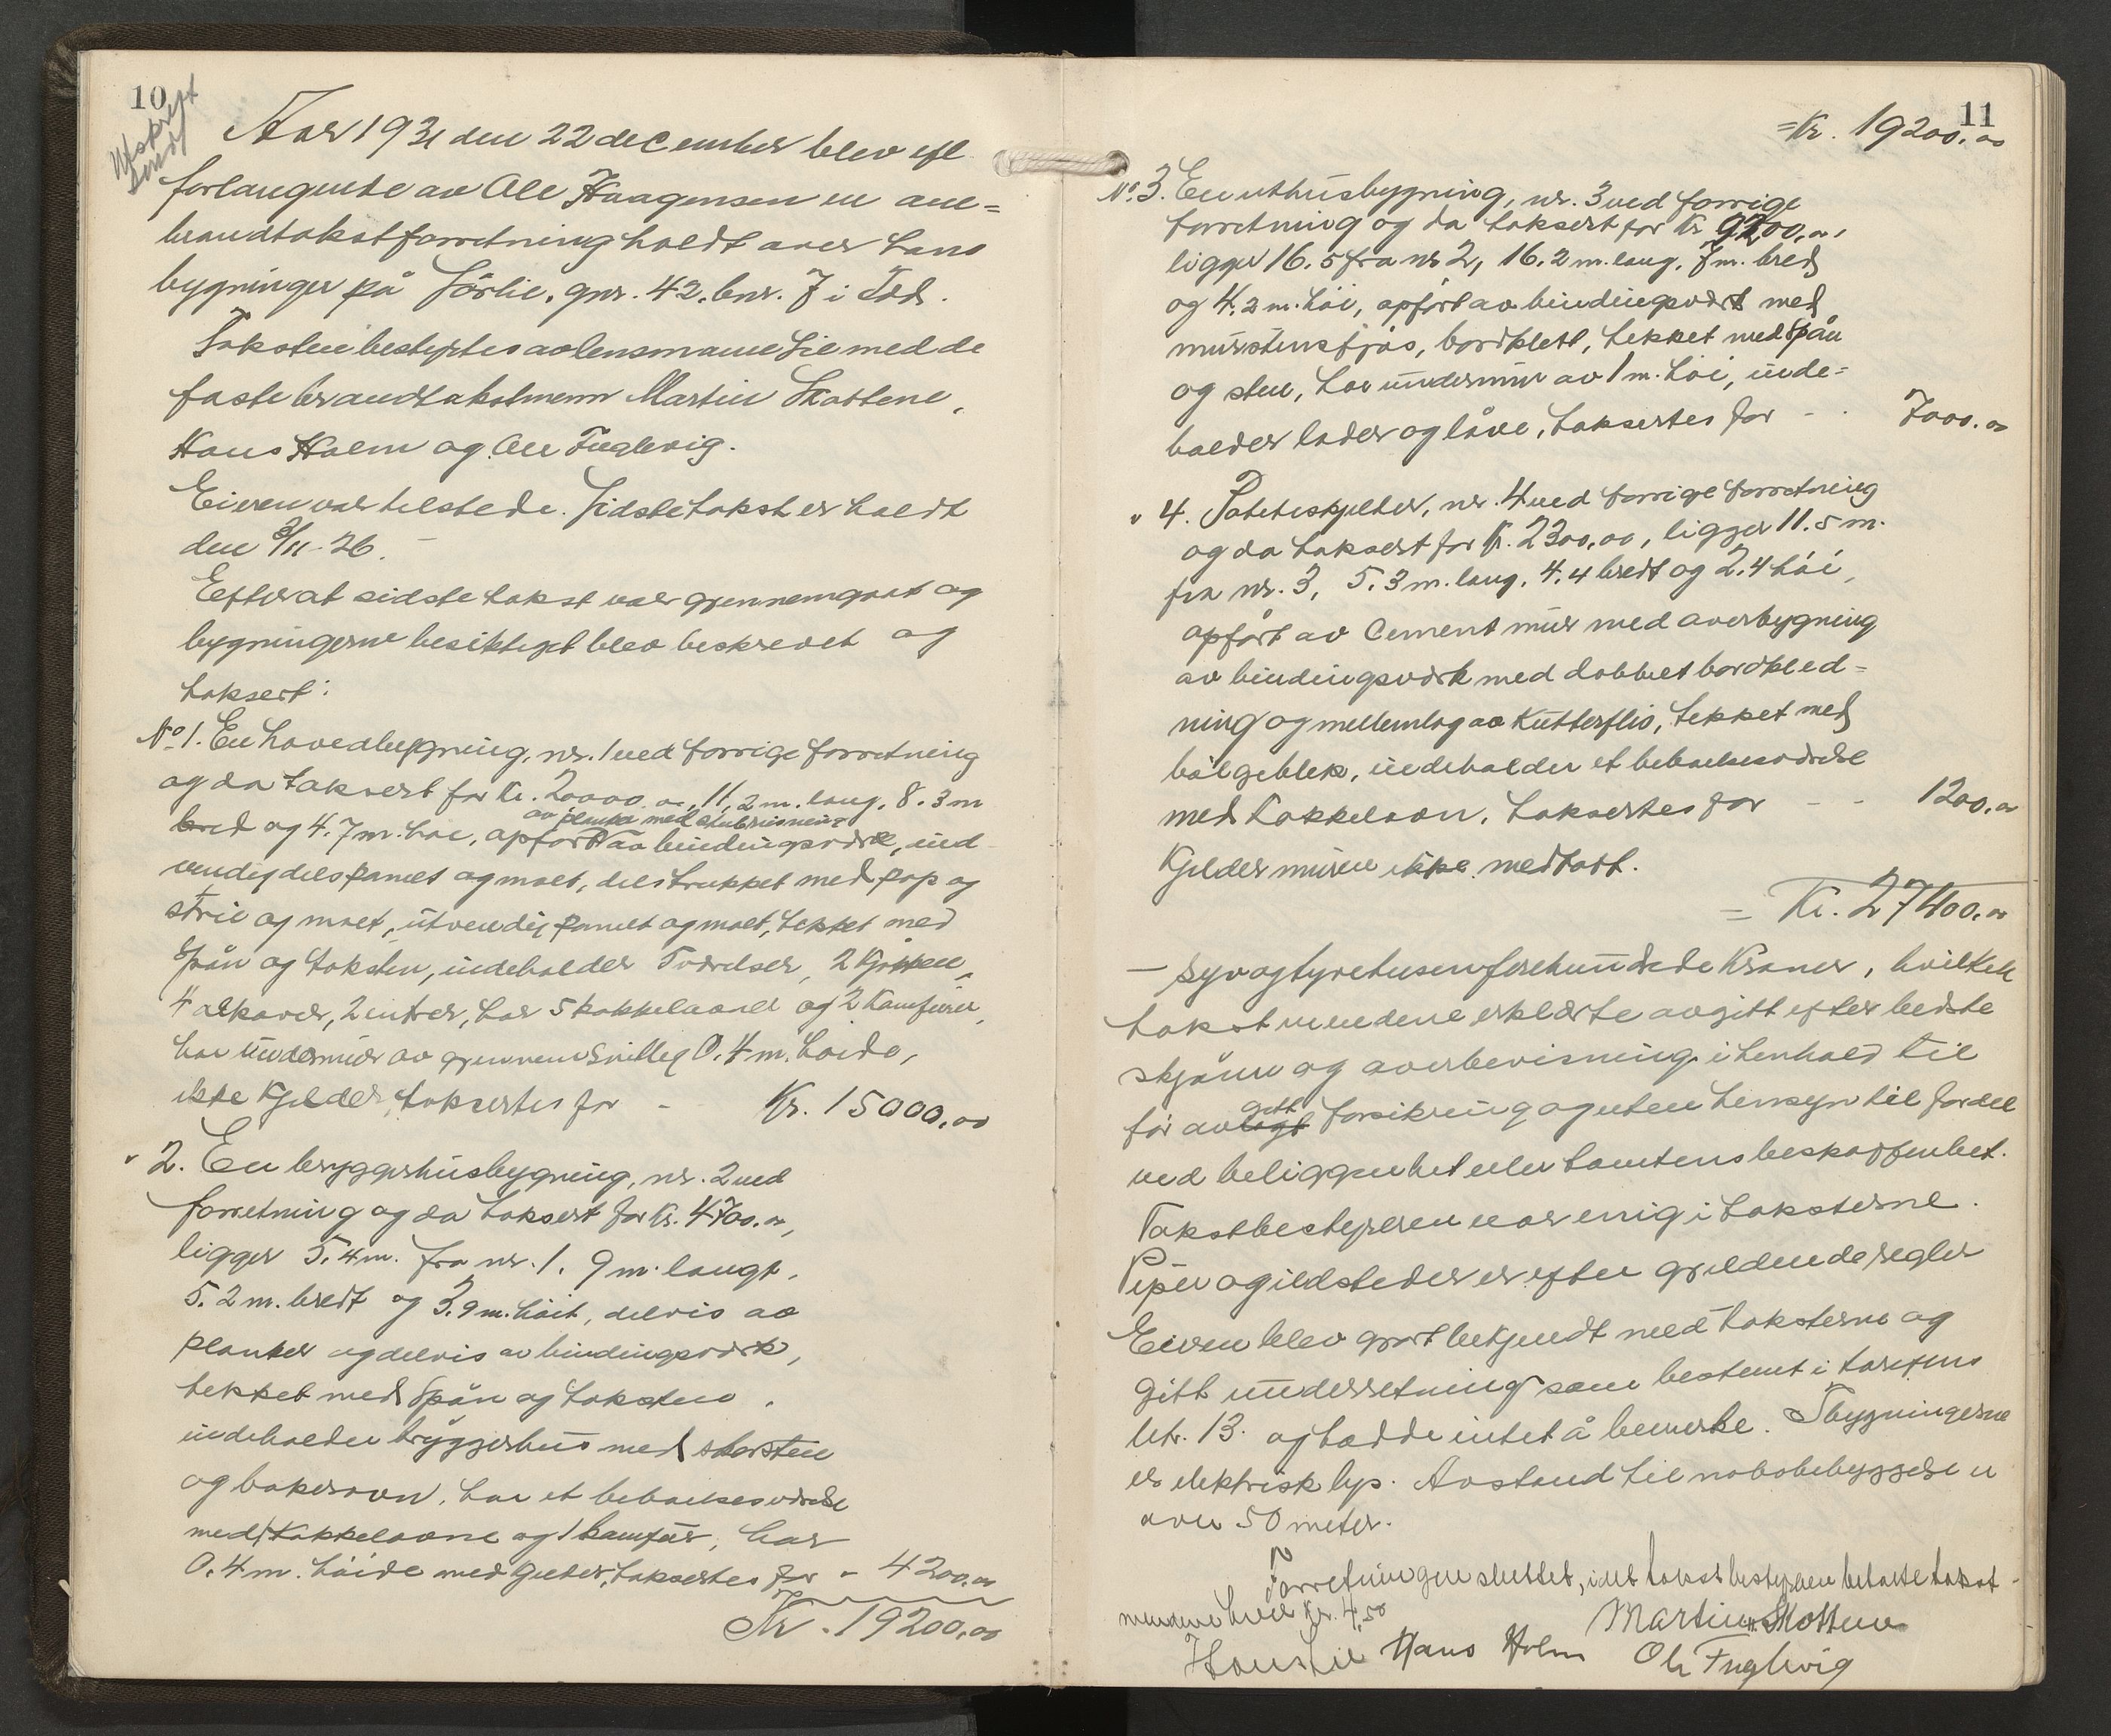 10
Utskrift
sendt
Aar 1931 den 22 december blev efl
forlangende av Ole Haagensen en om=
brandtakstforretning holdt over hans
bygninger på Sörlie, gnr. 42, bnr. 7 i
Taksten bestyrtes av lensmann Lie med de
faste brandtakstmenn Martin Skottene,
Hans Holm og Ole Fuglevig.
Eieren var tilstede. Sidste takst er holdt
den 3/11-26.
Efter at sidste takst var gjennemgaat og
bygningerne besiktiget blev beskrevet og
taksert:
No 1. En hovedbygning, nr. 1 ved forrige forretning
og da taksert for Kr. 20000.00, 11,2 m. lang, 8.3 m
av planke med
bred og 4.7 m. høi, opført av bindingsverk, ind
vendig dels panelt og malt, dels trukket med pap og
strie og malt, utvendig panelt og malt, tekket med
Spån og taksten, indeholder 7 værelser, 2 kjøkken,
4 alkover, 2 entreer, har 5 kakkelovner og 2 Komfurer,
har undermur av gjennemsnittlig 0.4 m. høide,
ikke kjelder, taksertes for - Kr. 15000,00
" 2. En bryggerhusbygning, nr. 2 ved
forretning og da taksert for Kr. 4700.00,
ligger 5.4 m. fra nr. 1, 9 m. langt,
5.2 m. bredt og 3.9 m. høit, delvis av
planker og delvis av bindingsverk,
tekket med Spån og taksten,
indeholder bryggerhus med skorsten
og bakerovn, har et beboelsesværelse
med 1 kakkelovne og 1 komfur, har
0.4 m. høide med taksertes for - 4200.00
Kr. 19200,00
11
= Kr. 19200,00
No. 3. En uthusbygning, nr. 3 ved forrige
forretning og da taksert for Kr 9200,00,
ligger 16.5 fra nr 2, 16.2 m. lang, 7 m. bred
og 4.2 m. høi, opført av bindingsverk med
murstensfjøs, bordklett, tekket med Spån
og sten, har undermur av 1 m. høi, inde=
holder lader og låve, taksertes for - - 7000.00
" 4. Potetkjelder, nr. 4 ved forrige forretning
og da taksert for Kr. 2300,00, ligger 11.5 m.
fra nr. 3, 5.3 m. lang, 4,4 bredt og 2.4 høi,
opført av Cement mur med overbygning
av bindingsverk med dobbelt bordkled=
ning og mellemlag av Kutterflis, tekket med
bølgeblek, indeholder et beboelsesværelse
med kakkelovn, taksertes for - - 1200,00
Kjelder muren ikke medtatt.
= Kr. 27400,00
- syvogtyvetusenfirehundrede Kroner, hvilken
takst mendene erklærte avgitt efter bedste
skjønn og overbevisning i henhold til
gitt
før avlagt forsikring og uten hensyn til fordel
ved beliggenhet eller tomtens beskaffenhet.
Takstbestyreren var enig i taksterne.
Piper og ildsteder er efter gjeldende regler
Eieren blev gjort bekjendt med taksterne og
gitt underretning som bestemt i tariffens
litr. 13. og hadde intet å bemerke. I bygningerne
er elektrisk lys. Avstand til nabobebyggelse er
over 50 meter.
Forretningen sluttet, idet takst bestyreren betalte takst-
mendene hver Kr. 4,50
Martin Skottene
Hans Lie Hans Holm Ole Fuglevig